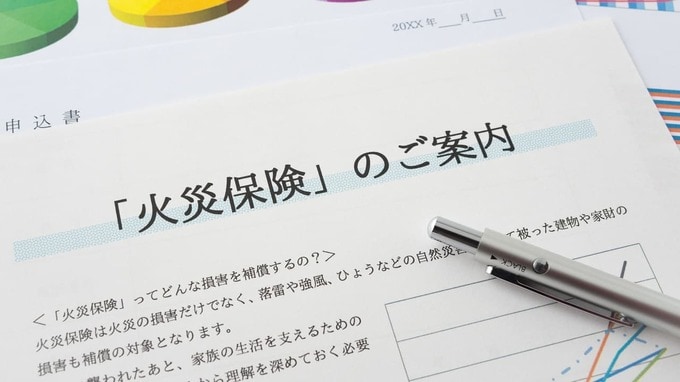 20XX年___月___日
申込書
「火災保険」のご案内
<「火災保険」ってどんな損害を補償するの?>
火災保険は火災の損害だけでなく、落雷や強風、ひょうなどの自然災 て被った建物や家財の
損害も補償の対象となります。
襲われたあと、家族の生活を支えるための
から理解を深めておく必要
BLACK